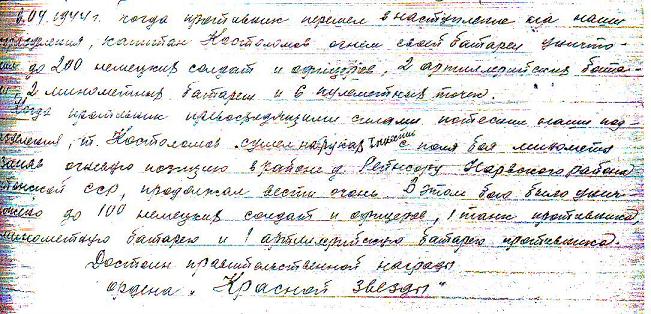 6.04.1944 г. когда противник перешел в наступление на наши
подразделения, капитан Костоломов огнем своей батареи уничто-
жил до 200 немецких солдат и офицеров, 2 артиллерийских бата-
реи, 2 минометных батареи и 6 пулеметных точек.
Когда противник превосходящими силами потеснил наши под-
разделения, т. Костоломов сумел на руках вынести с поля боя минометы
заняв огневую позицию в районе д. Репнсору Нарвского района
Эстонской ССР, продолжал вести огонь. В этом бою было унич-
тожено до 100 немецких солдат и офицеров, 1 танк противника,
минометную батарею и 1 артиллерийскую батарею противника.
Достоин правительственной награды
ордена "Красной Звезды"